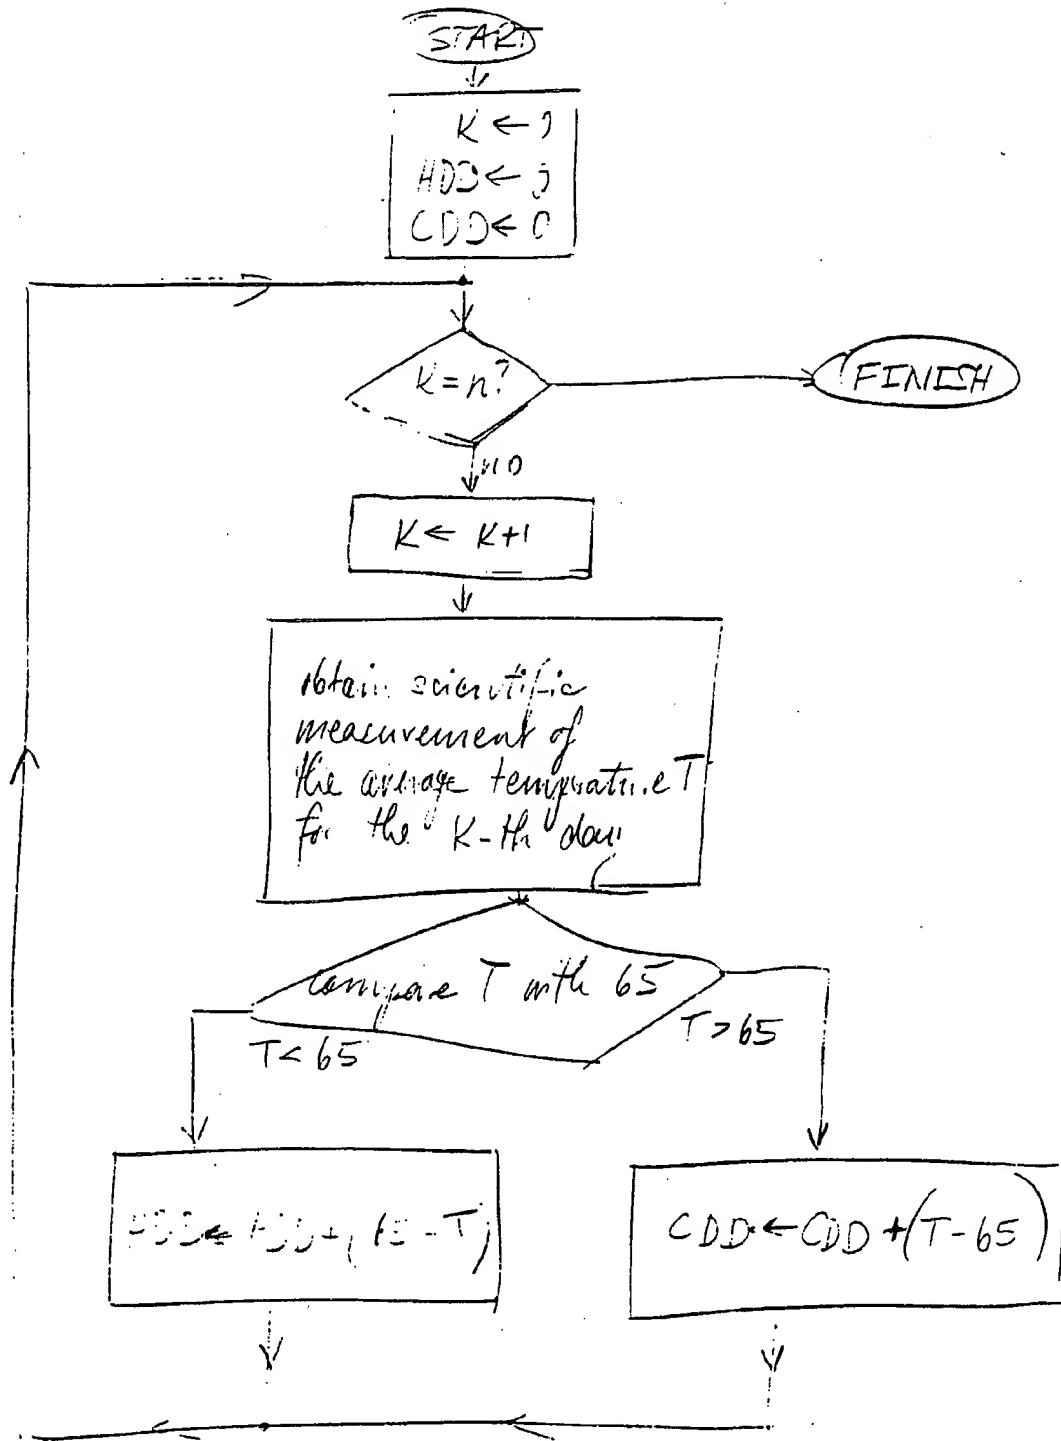 START
K ← 0
HDD ← 0
CDD ← 0
K = n?
FINISH
no
K ← K+1
obtain scientific
measurement of
the average temperature T
for the K-th day
compare T with 65
T < 65
T > 65
HDD ← HDD + (65 - T)
CDD ← CDD + (T - 65)